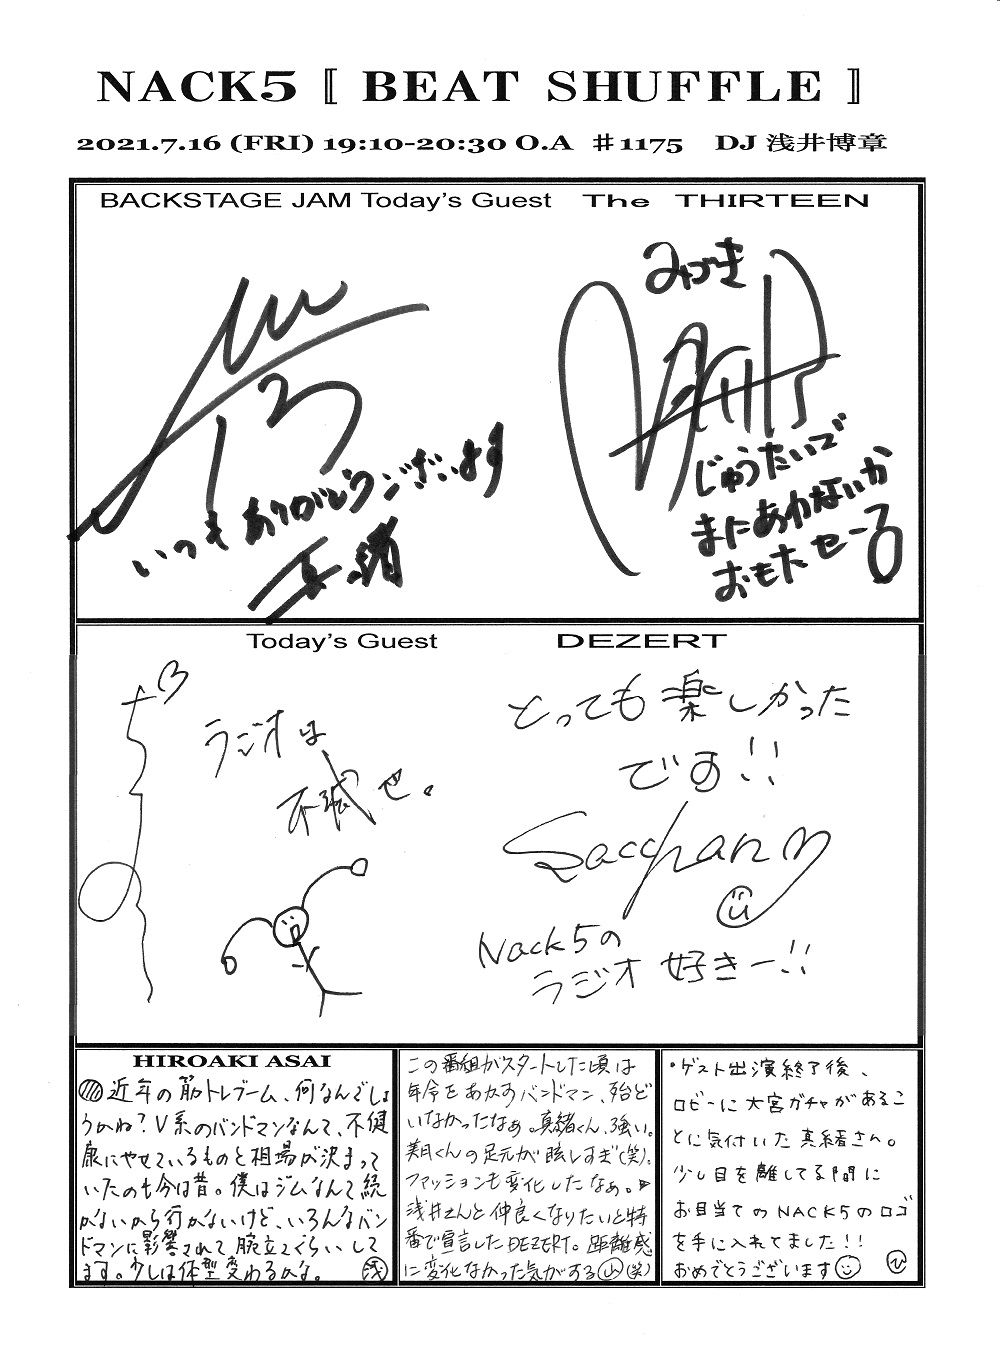 NACK5 〚 BEAT SHUFFLE 〛
2021.7.16 (FRI) 19:10-20:30 O.A ♯1175 DJ 浅井博章
BACKSTAGE JAM Today's Guest The THIRTEEN
いつもありがとうございます
真緒
みづき
じゅうたいで
またあわないか
おもたせーる
Today's Guest DEZERT
ラジオは
不滅せ。
とっても楽しかった
です!!
Sacchan
Nack5の
ラジオ 好きー!!
HIROAKI ASAI
近年の筋トレブーム、何なんでしょ
うかね?V系のバンドマンなんて、不健
康にやせているものと相場が決まって
いたのも今は昔。僕はジムなんて続
かないから行かないけど、いろんなバン
ドマンに影響されて腕立てぐらいして
ます。少しは体型変わるかな。 浅
この番組がスタートした頃は
年令をあかすバンドマン、殆ど
いなかったなぁ。真緒くん、強い。
美月くんの足元が眩しすぎ(笑)。
ファッションも変化したなぁ。▶
浅井さんと仲良くなりたいと特
番で宣言したDEZERT。距離感
に変化なかった気がする 山 (笑)
・ゲスト出演終了後、
ロビーに大宮ガチャがあるこ
とに気付いた真緒さん。
少し目を離してる間に
お目当てのNACK5のロゴ
を手に入れてました!!
おめでとうございます ひ